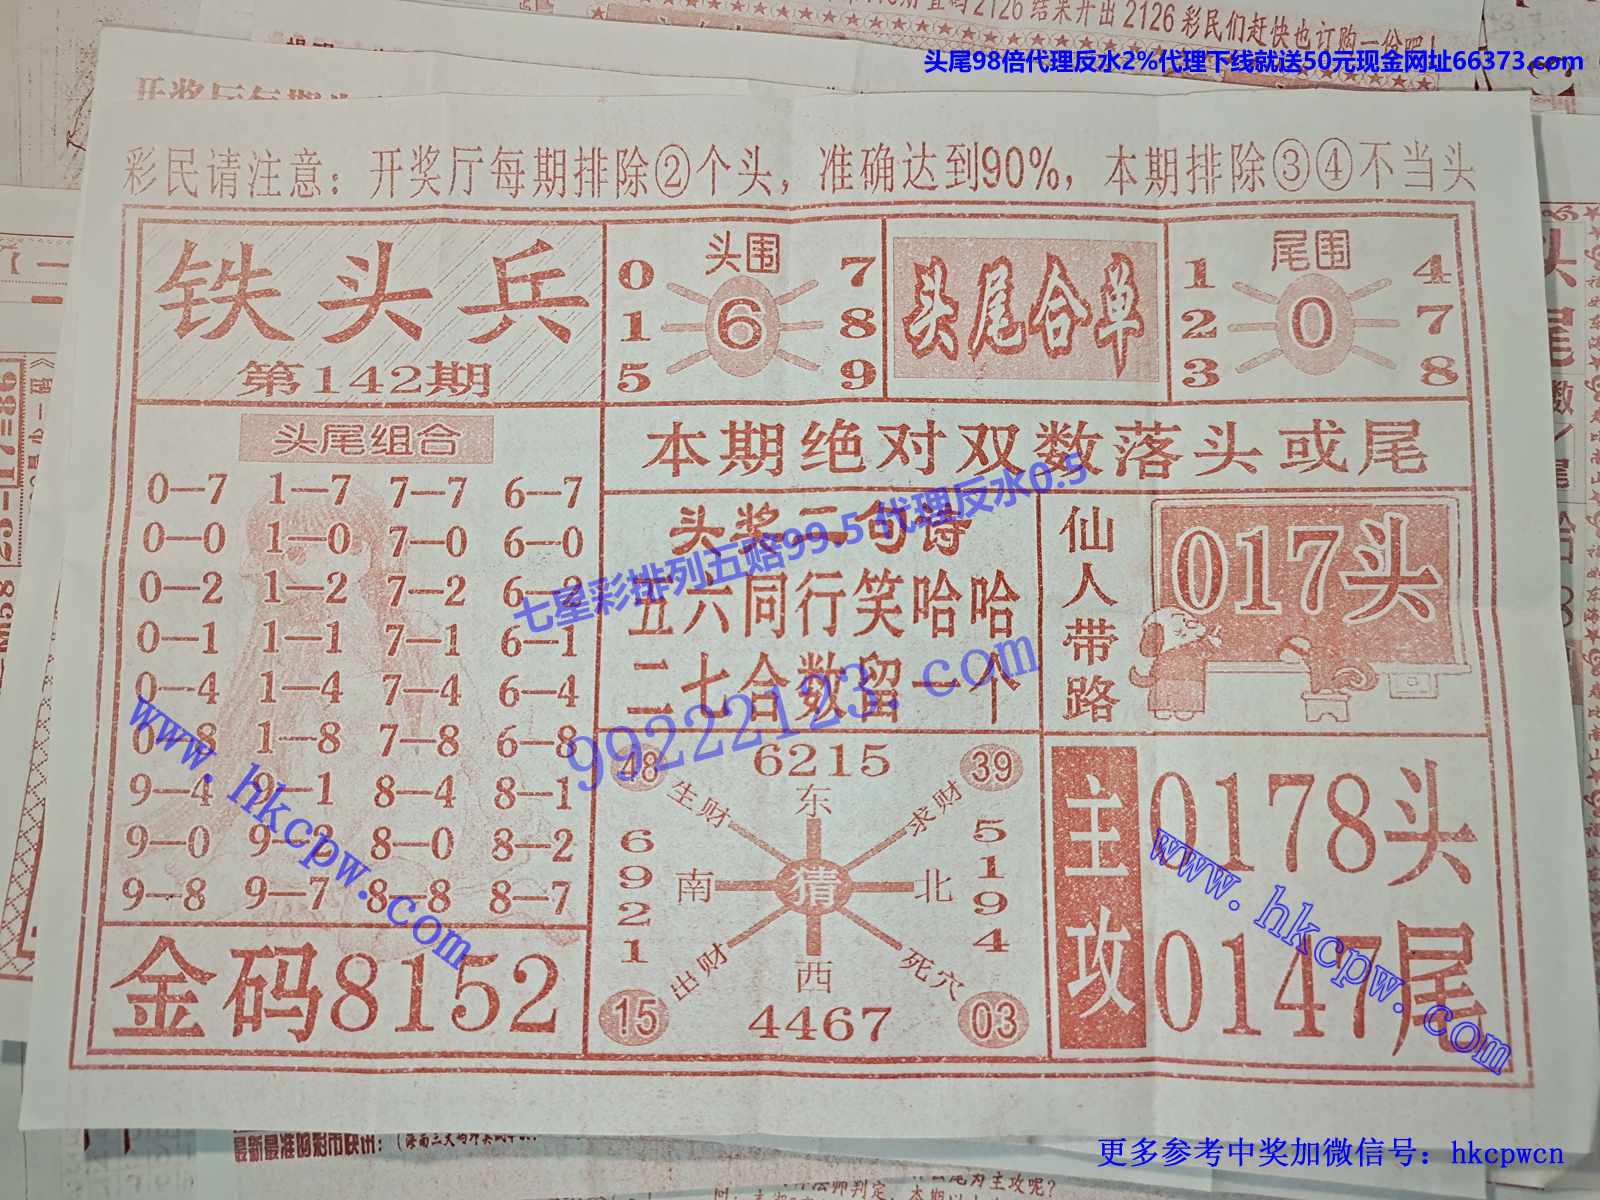 2126 结果开出 2126 彩民们赶快也订购一份吧!
头尾98倍代理反水2%代理下线就送50元现金网址66373.com
彩民请注意：开奖厅每期排除②个头，准确达到90%，本期排除③④不当头
铁头兵
第142期
头围
0 7
1 6 8
5 9
头尾合单
尾围
1 4
2 0 7
3 8
头尾组合
0—7 1—7 7—7 6—7
0—0 1—0 7—0 6—0
0—2 1—2 7—2 6—2
0—1 1—1 7—1 6—1
0—4 1—4 7—4 6—4
0—8 1—8 7—8 6—8
9—4 9—1 8—4 8—1
9—0 9—2 8—0 8—2
9—8 9—7 8—8 8—7
金码8152
本期绝对双数落头或尾
头奖二句诗
五六同行笑哈哈
二七合数留一个
仙人带路
017头
七星彩排列五赔99.5 代理反水0.5
99222123.com
48 6215 39
生财 东 求财
6921 南 猜 北 5194
出财 西 死穴
15 4467 03
主攻
0178头
0147尾
www.hkcpw.com
www.hkcpw.com
更多参考中奖加微信号：hkcpwcn